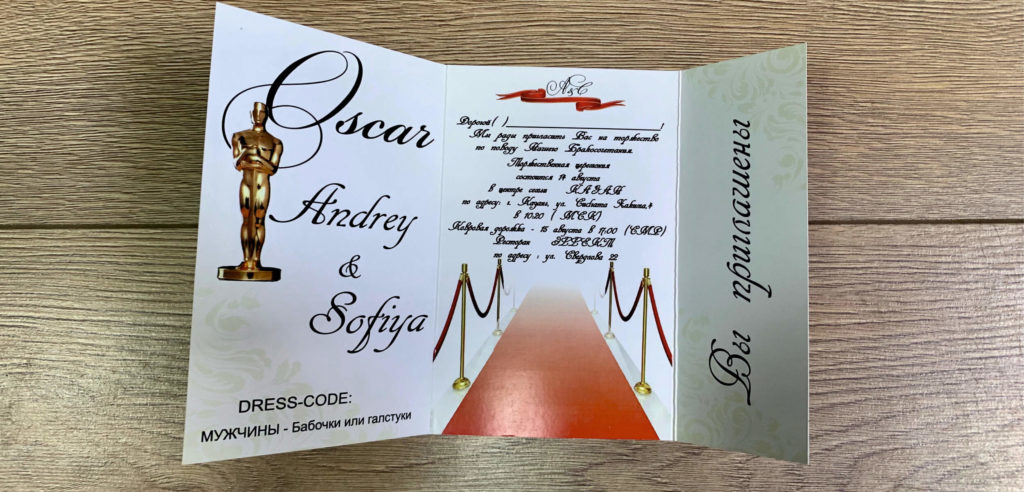 Oscar
Andrey
&
Sofiya
DRESS-CODE:
МУЖЧИНЫ - Бабочки или галстуки
А&С
Дорогой( )____________________!
Мы рады пригласить Вас на торжество
по поводу Нашего Бракосочетания.
Торжественная церемония
состоится 14 августа
в центре семьи КАЗАН
по адресу: г. Казань, ул. Сибгата Хакима,4
в 10:20 ( МСК)
Ковровая дорожка - 15 августа в 17.00 (ЕМР)
Ресторан
по адресу : ул. Свердлова 22
Вы приглашены